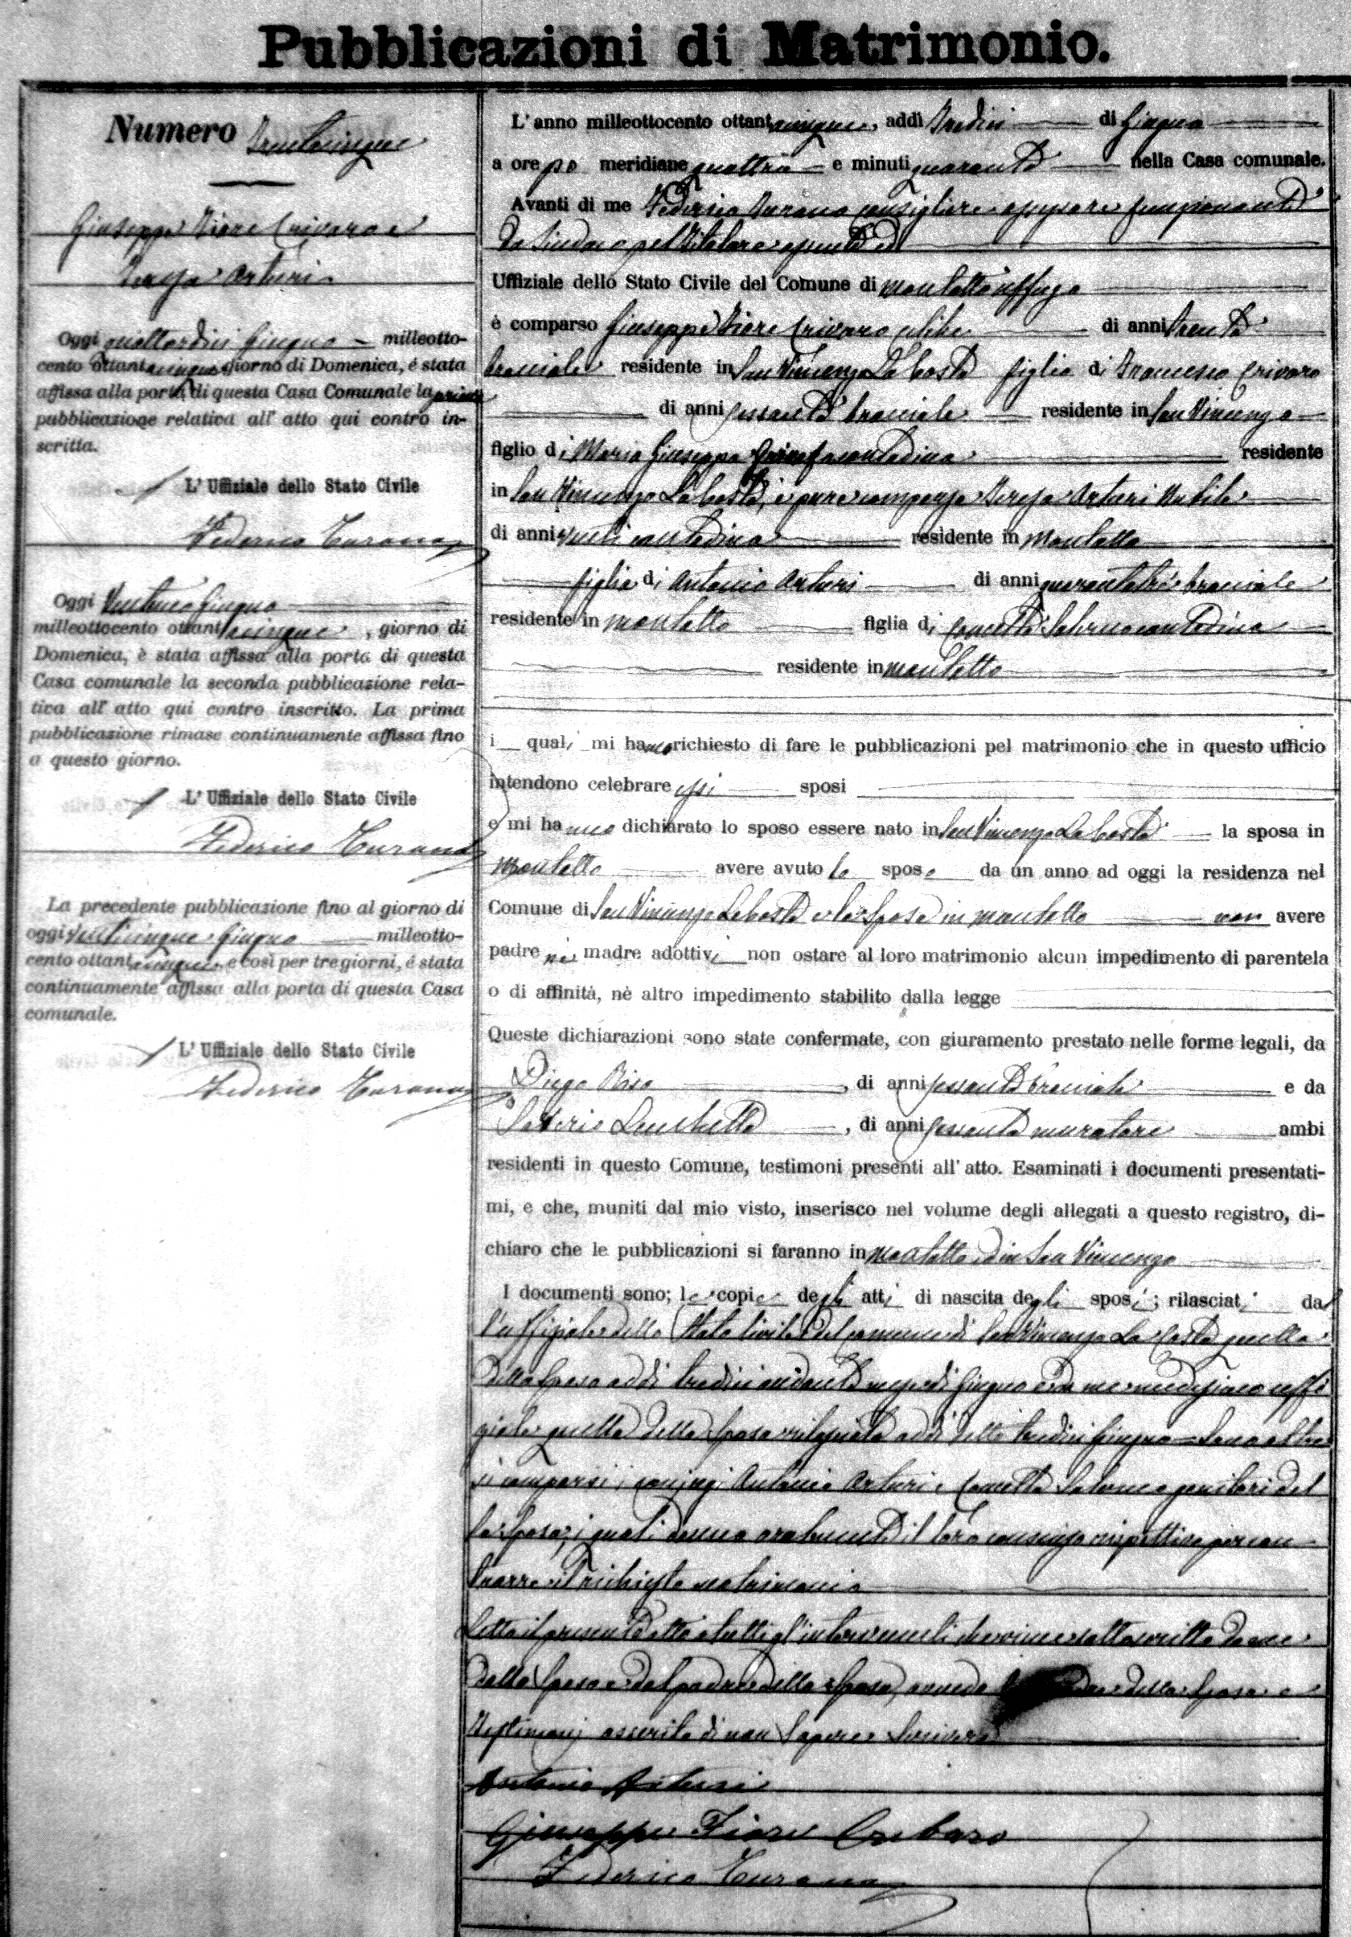 Pubblicazioni di Matrimonio.
Numero Trentacinque
Giuseppe Fiore Crivaro e
Teresa Arturi
Oggi quattordici Giugno milleotto-
cento ottantacinque giorno di Domenica, é stata
affissa alla porta di questa Casa Comunale la prima
pubblicazione relativa all' atto qui contro in-
scritta.
L' Uffiziale dello Stato Civile
Federico Turano
Oggi Ventuno Giugno
milleottocento ottantacinque, giorno di
Domenica, è stata affissa alla porta di questa
Casa comunale la seconda pubblicazione rela-
tiva all' atto qui contro inscritto. La prima
pubblicazione rimase continuamente affissa fino
a questo giorno.
L' Uffiziale dello Stato Civile
Federico Turano
La precedente pubblicazione fino al giorno di
oggi venticinque Giugno milleotto-
cento ottantacinque, e così per tre giorni, é stata
continuamente affissa alla porta di questa Casa
comunale.
L' Uffiziale dello Stato Civile
Federico Turano
L' anno milleottocento ottantacinque, addì Tredici di Giugno
a ore po meridiane quattro e minuti quaranta nella Casa comunale.
Avanti di me Federico Turano consigliere assessore funzionante
da Sindaco pel titolare
Uffiziale dello Stato Civile del Comune di Montalto Uffugo
è comparso Giuseppe Fiore Crivaro celibe di anni trenta
bracciale residente in San Vincenzo La Costa figlio di Francesco Crivaro
di anni sessanta bracciale residente in San Vincenzo
figlio di Maria Giuseppa contadina residente
in San Vincenzo La Costa, e pure comparsa Teresa Arturi Nubile
di anni venti contadina residente in Montalto
figlia di Antonio Arturi di anni quarantatre bracciale
residente in Montalto figlia di Concetta Salerno contadina
residente in Montalto
i quali mi hanno richiesto di fare le pubblicazioni pel matrimonio che in questo ufficio
intendono celebrare essi sposi
e mi hanno dichiarato lo sposo essere nato in San Vincenzo La Costa la sposa in
Montalto avere avuto lo sposo da un anno ad oggi la residenza nel
Comune di San Vincenzo La Costa e la Sposa in Montalto non avere
padre nè madre adottivi non ostare al loro matrimonio alcun impedimento di parentela
o di affinità, nè altro impedimento stabilito dalla legge
Queste dichiarazioni sono state confermate, con giuramento prestato nelle forme legali, da
Diego Riso, di anni sessanta bracciale e da
Saverio, di anni sessanta muratore ambi
residenti in questo Comune, testimoni presenti all' atto. Esaminati i documenti presentati-
mi, e che, muniti dal mio visto, inserisco nel volume degli allegati a questo registro, di-
chiaro che le pubblicazioni si faranno in Montalto ed in San Vincenzo
I documenti sono; le copie degli atti di nascita degli sposi; rilasciati dal
l'uffiziale dello Stato Civile del comune di San Vincenzo La Costa quella
dello Sposo addi tredici andante mese di Giugno e da me medesimo uffi
ziale quella della Sposa rilasciata addi detto tredici Giugno = Sono altre
si comparsi i coniugi Antonio Arturi e Concetta Salerno genitori del
la Sposa, i quali danno oralmente il loro consenso rispettivo per con
trarre il richiesto matrimonio
Letto il presente atto a tutti gl'intervenuti che viene sottoscritto da me
dallo Sposo e dal padre della Sposa, avendo della Sposa e
Testimoni asserito di non Sapere Scrivere
Antonio Arturi
Giuseppe Fiore Cribaro
Federico Turano